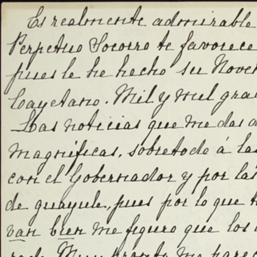 Es realmente admirable
Perpetuo Socorro te favorece
pues le he hecho su Nove
Cayetano. Mil y mil gra
Las noticias que me das d
magníficas, sobre todo a la
con el Gobernador y por la
de guayule, pues por lo que t
van bien me figuro que los